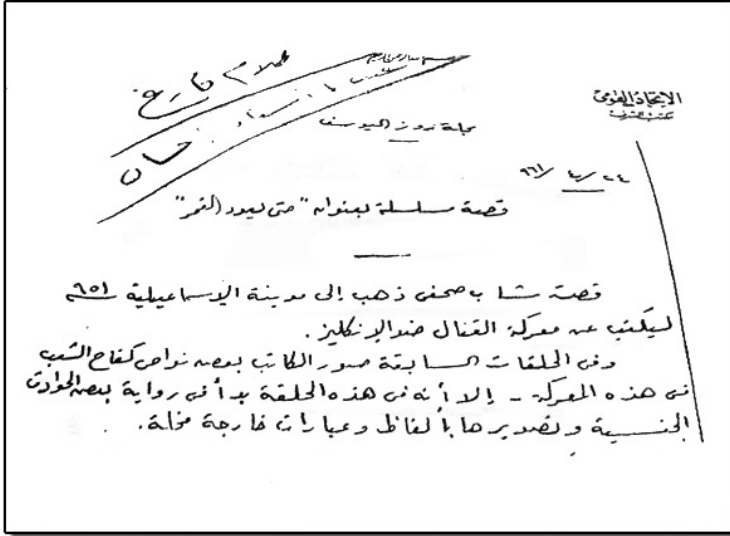 كلام فارغ
الاتحاد القومي
مجلة روز اليوسف
٢٤/٤/٩٦١
قصة مسلسلة بعنوان "حتى يعود القمر"
قصة شاب صحفى ذهب إلى مدينة الإسماعيلية ٩٥١
ليكتب عن معركة القنال ضد الإنكليز .
وفى الحلقات السابقة صور الكاتب بعض نواحى كفاح الشعب
فى هذه المعركة - إلا أنه فى هذه الحلقة بدأ فى رواية بعض الحوادث
الجنسية وتصويرها بألفاظ وعبارات خارجة مخلة .